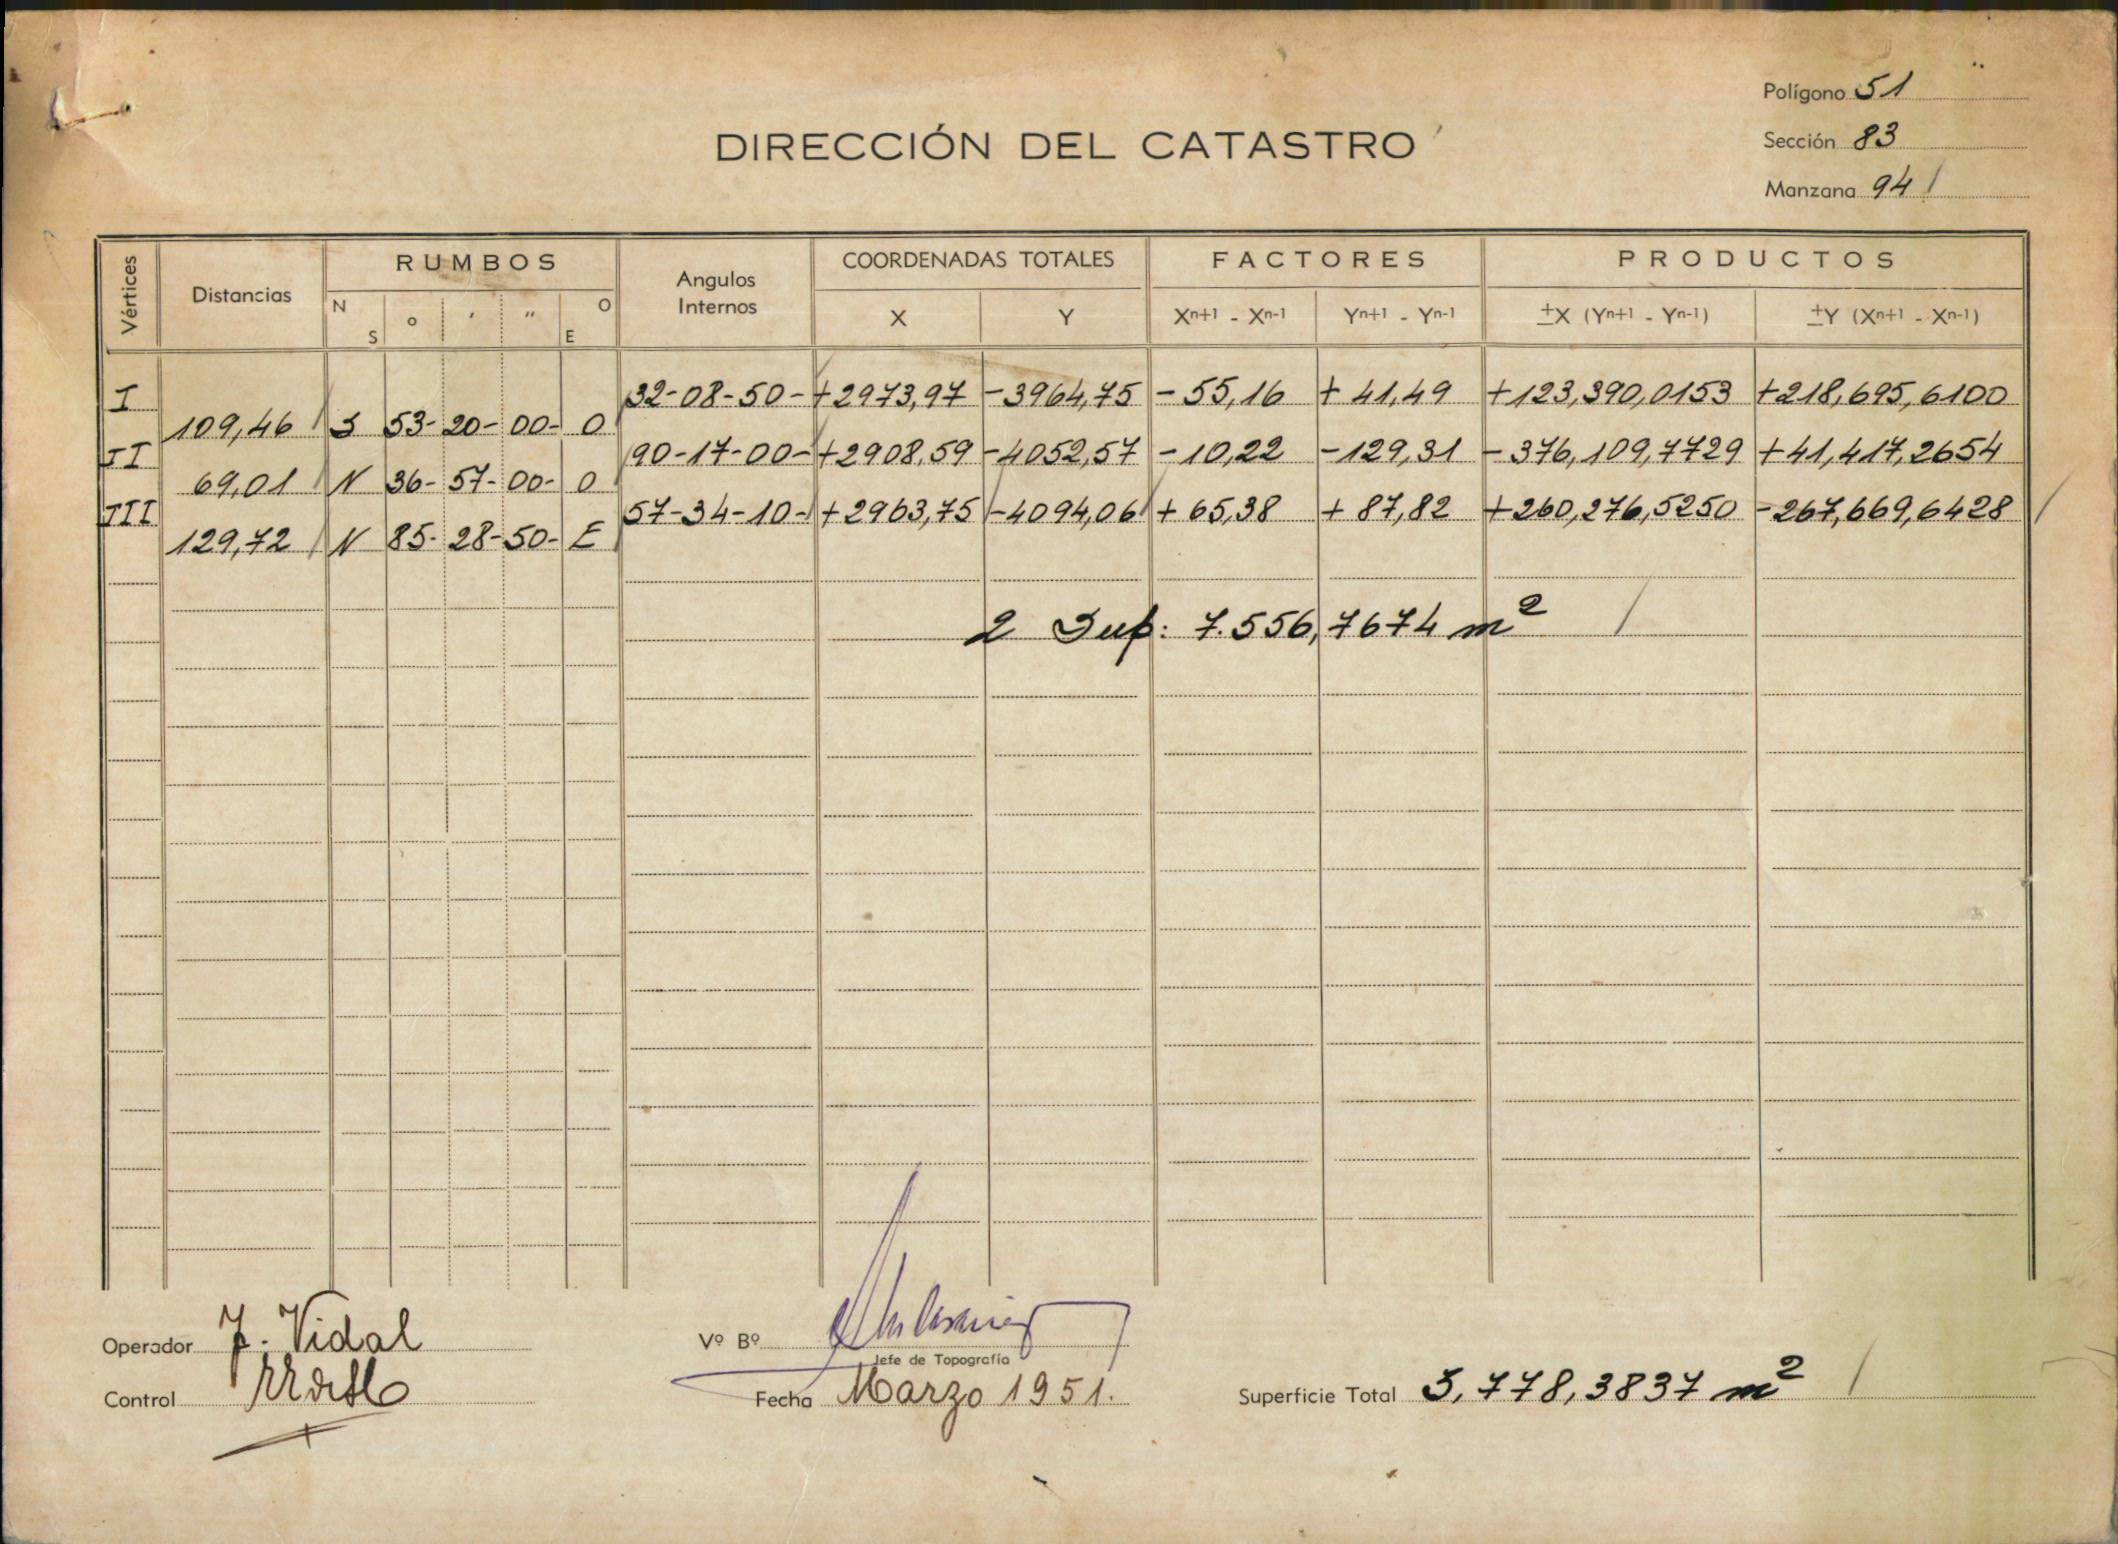 Polígono 51
DIRECCIÓN DEL CATASTRO
Sección 83
Manzana 94
Vértices Distancias RUMBOS Angulos Internos COORDENADAS TOTALES FACTORES PRODUCTOS
N S o ′ ″ O E X Y Xn+1 - Xn-1 Yn+1 - Yn-1 ±X (Yn+1 - Yn-1) ±Y (Xn+1 - Xn-1)
I 32-08-50- +2973,97 -3964,75 -55,16 +41,49 +123,390,0153 +218,695,6100
109,46 S 53- 20- 00- O
II 90-17-00- +2908,59 -4052,57 -10,22 -129,31 -376,109,7729 +41,417,2654
69,01 N 36- 57- 00- O
III 57-34-10- +2963,75 -4094,06 +65,38 +87,82 +260,276,5250 -267,669,6428
129,72 N 85- 28- 50- E
2 Sup: 7.556,7674 m²
Operador J. Vidal
Vº Bº
Jefe de Topografía
Control
Fecha Marzo 1951.
Superficie Total 3,778,3837 m²